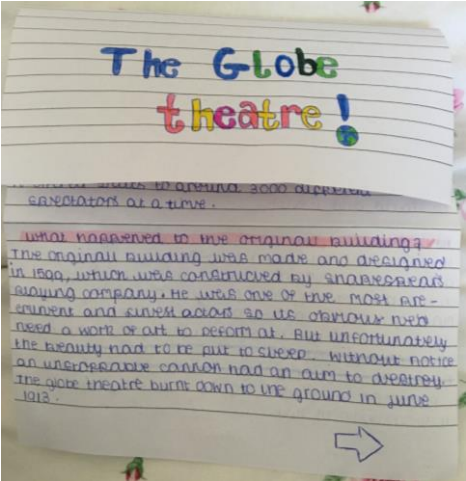 The Globe
theatre!
to around 3000 different
spectators at a time.
What happened to the original building?
The original building was made and designed
in 1599, which was constructed by shakespear's
playing company. He was one of the most pre-
eminent and finest actors so its obvious he'd
need a work of art to perform at. But unfortunately
the beauty had to be put to sleep. Without notice
an unstoppable cannon had an aim to destroy.
The globe theatre burnt down to the ground in june
1913.